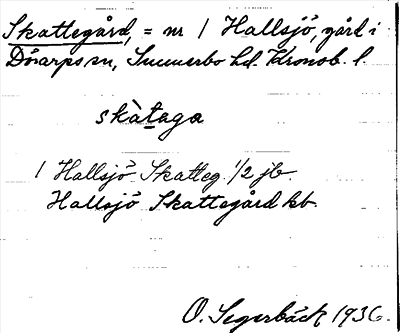 Skattegård, = nr 1 Hallsjö, gård i
Dörarps sn, Sunnerbo hd. Kronob. l.
skàtaga
1 Hallsjö Skatteg. 1/2 jb
Hallsjö Skattegård kb.
O. Segerbäck 1936.